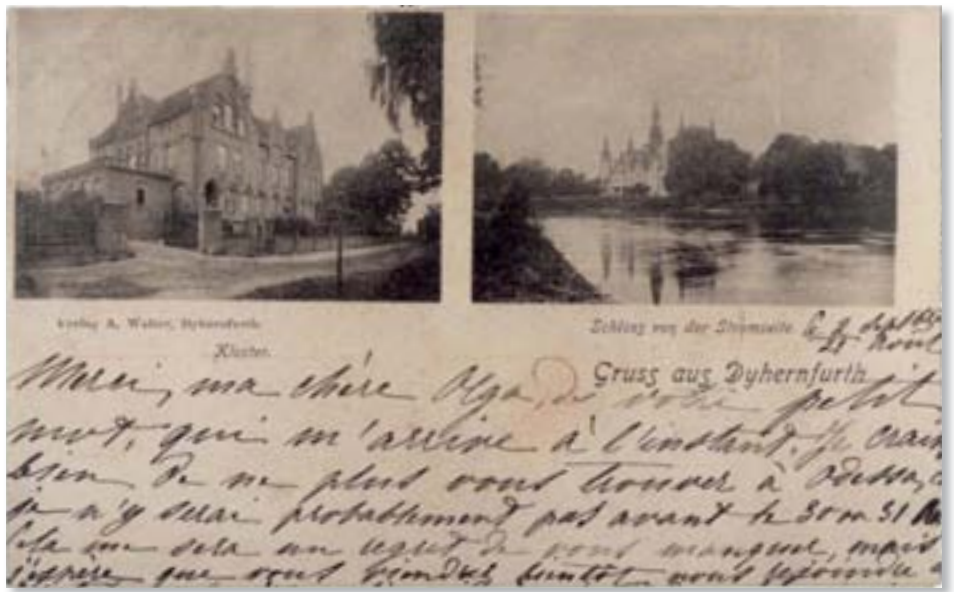 Verlag A. Walter, Dyhernfurth.
Kloster.
Schloss von der Stromseite.
Gruss aus Dyhernfurth
le 2 Sept
Août
Merci, ma chère Olga, de votre petit
mot, qui m'arrive à l'instant. Je crain
bien de ne plus vous trouver à Odessa,
je n'y serai probablement pas avant le 30 ou 31
Cela me sera un regret de vous manquer, mais
j'espère que vous viendrez bientôt nous rejoindre